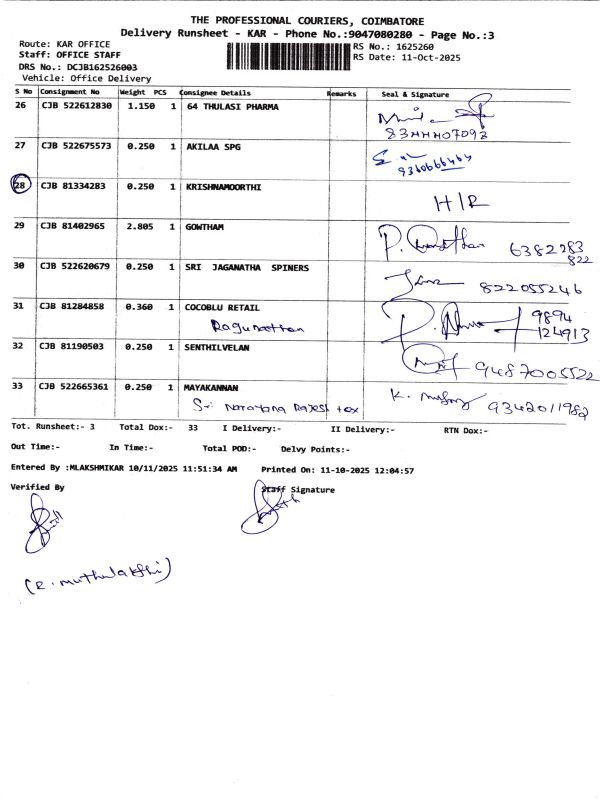 THE PROFESSIONAL COURIERS, COIMBATORE
Delivery Runsheet - KAR - Phone No.:9047080280 - Page No.:3
Route: KAR OFFICE RS No.: 1625260
Staff: OFFICE STAFF RS Date: 11-Oct-2025
DRS No.: DCJB162526003
Vehicle: Office Delivery
S No Consignment No Weight PCS Consignee Details Remarks Seal & Signature
26 CJB 522612830 1.150 1 64 THULASI PHARMA
27 CJB 522675573 0.250 1 AKILAA SPG
28 CJB 81334283 0.250 1 KRISHNAMOORTHI H/R
29 CJB 81402965 2.805 1 GOWTHAM 6382283
822
30 CJB 522620679 0.250 1 SRI JAGANATHA SPINERS 822055246
31 CJB 81284858 0.360 1 COCOBLU RETAIL 9894
Ragunathan 124913
32 CJB 81190503 0.250 1 SENTHILVELAN 9487005522
33 CJB 522665361 0.250 1 MAYAKANNAN
Sri Narayana Rajesh tex K. 9342011982
Tot. Runsheet:- 3 Total Dox:- 33 I Delivery:- II Delivery:- RTN Dox:-
Out Time:- In Time:- Total POD:- Delvy Points:-
Entered By :MLAKSHMIKAR 10/11/2025 11:51:34 AM Printed On: 11-10-2025 12:04:57
Verified By Staff Signature
(R. Muthulakshi)